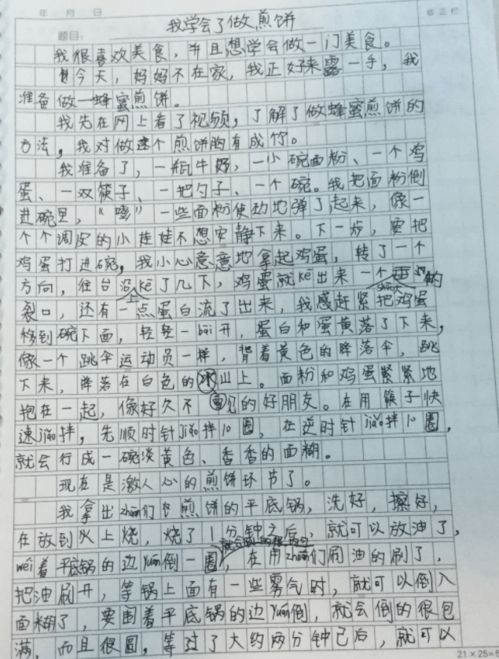 年 月 日
题目：
我学会了做煎饼
我很喜欢美食，并且想学会做一门美食。
今天，妈妈不在家，我正好来露一手，我
准备做一蜂蜜煎饼。
我先在网上看了视频，了解了做蜂蜜煎饼的
方法，我对做这个煎饼胸有成竹。
我准备了，一瓶牛奶，一小碗面粉、一个鸡
蛋、一双筷子、一把勺子、一个碗。我把面粉倒
进碗里，“嘭”一些面粉使劲地弹了起来，像一
个个调皮的小娃娃不想安静下来。下一步，要把
鸡蛋打进碗，我小心意意地拿起鸡蛋，转了一个
方向，往台沿上kē了几下，鸡蛋就kē出来一个 的
裂口，还有一点蛋白流了出来，我感赶紧把鸡蛋
移到碗下面，轻轻一bāi开，蛋白和蛋黄落了下来，
像一个跳伞运动员一样，背着黄色的降落伞，跳
下来，降落在白色的冰山上。面粉和鸡蛋紧紧地
抱在一起，像好久不见的好朋友。在用筷子快
速jiǎo拌，先顺时针jiǎo拌10圈，在逆时针jiǎo拌10圈，
就会行成一碗淡黄色、香香的面糊。
现在是激人心的煎饼环节了。
我拿出zhuān们 煎饼的平底锅，洗好，擦好，
在放到火上烧，烧了1分钟之后，就可以放油了，
wéi着平底锅的边yuán倒一圈，在用zhuān们刷油的刷了，
把油刷开，等锅上面有一些雾气时，就可以倒入
面糊了，要围着平底锅的边yuán倒，就会倒的很包
满，而且很圆，等过了大约两分钟已后，就可以
21×25=5